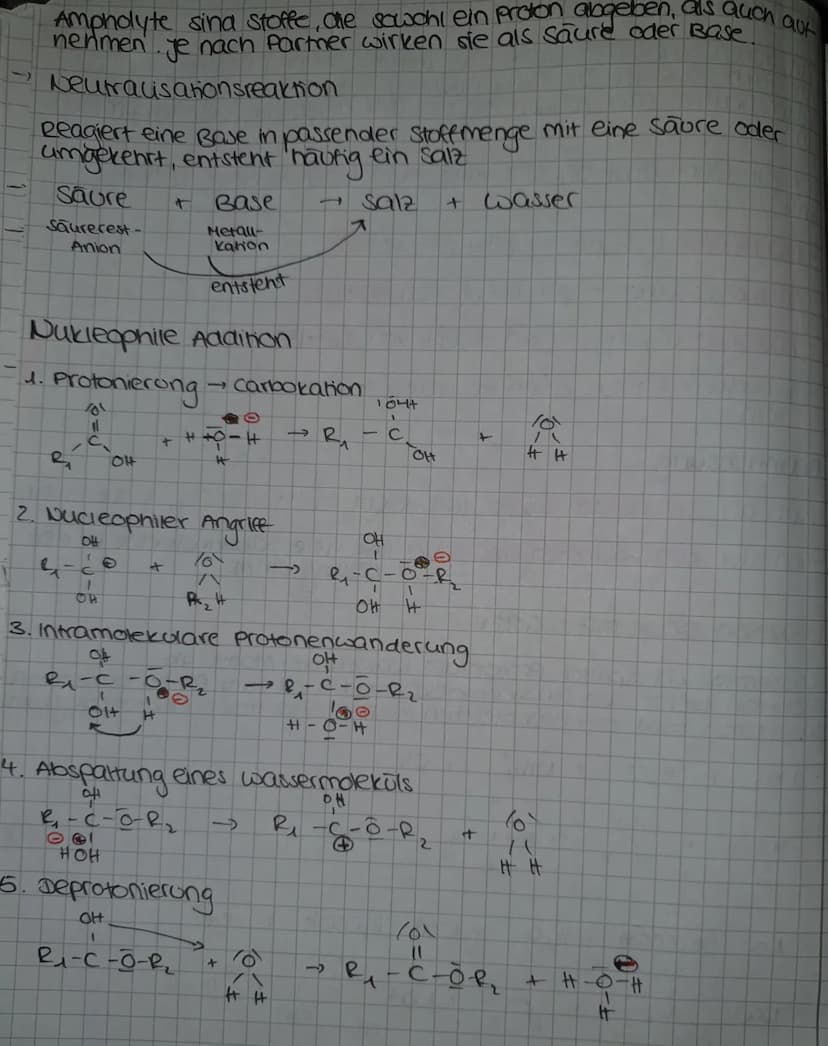 Ampholyte sind Stoffe, die sowohl ein Proton abgeben, als auch auf
nehmen. Je nach Partner wirken sie als Säure oder Base.
→ Neutralisationsreaktion
Reagiert eine Base in passender Stoffmenge mit eine Säure oder
umgekehrt, entsteht häufig ein Salz
- Säure + Base → Salz + Wasser
- Säurerest- Metall-
Anion Kation
entsteht
Nukleophile Addition
- 1. Protonierung → Carbokation
|O| IOHH
|| |O|
C + H + O - H → R1 - C +
R1 OH H OH H H
2. Nucleophiler Angriff
OH OH
R1 - C ⊕ + |O| → R1 - C - O ⊖ - R2
OH R2 H OH H
3. Intramolekulare Protonenwanderung
OH OH
R1 - C - O - R2 → R1 - C - O - R2
OH H ⊖ ⊕ ⊖
H - O - H
4. Abspaltung eines Wassermoleküls
OH OH
R1 - C - O - R2 → R1 - C - O - R2 + |O|
⊖ ⊕ ⊕ H H
HOH
5. Deprotonierung
OH |O|
R1 - C - O - R2 + |O| → R1 - C - O - R2 + H - O - H
H H H